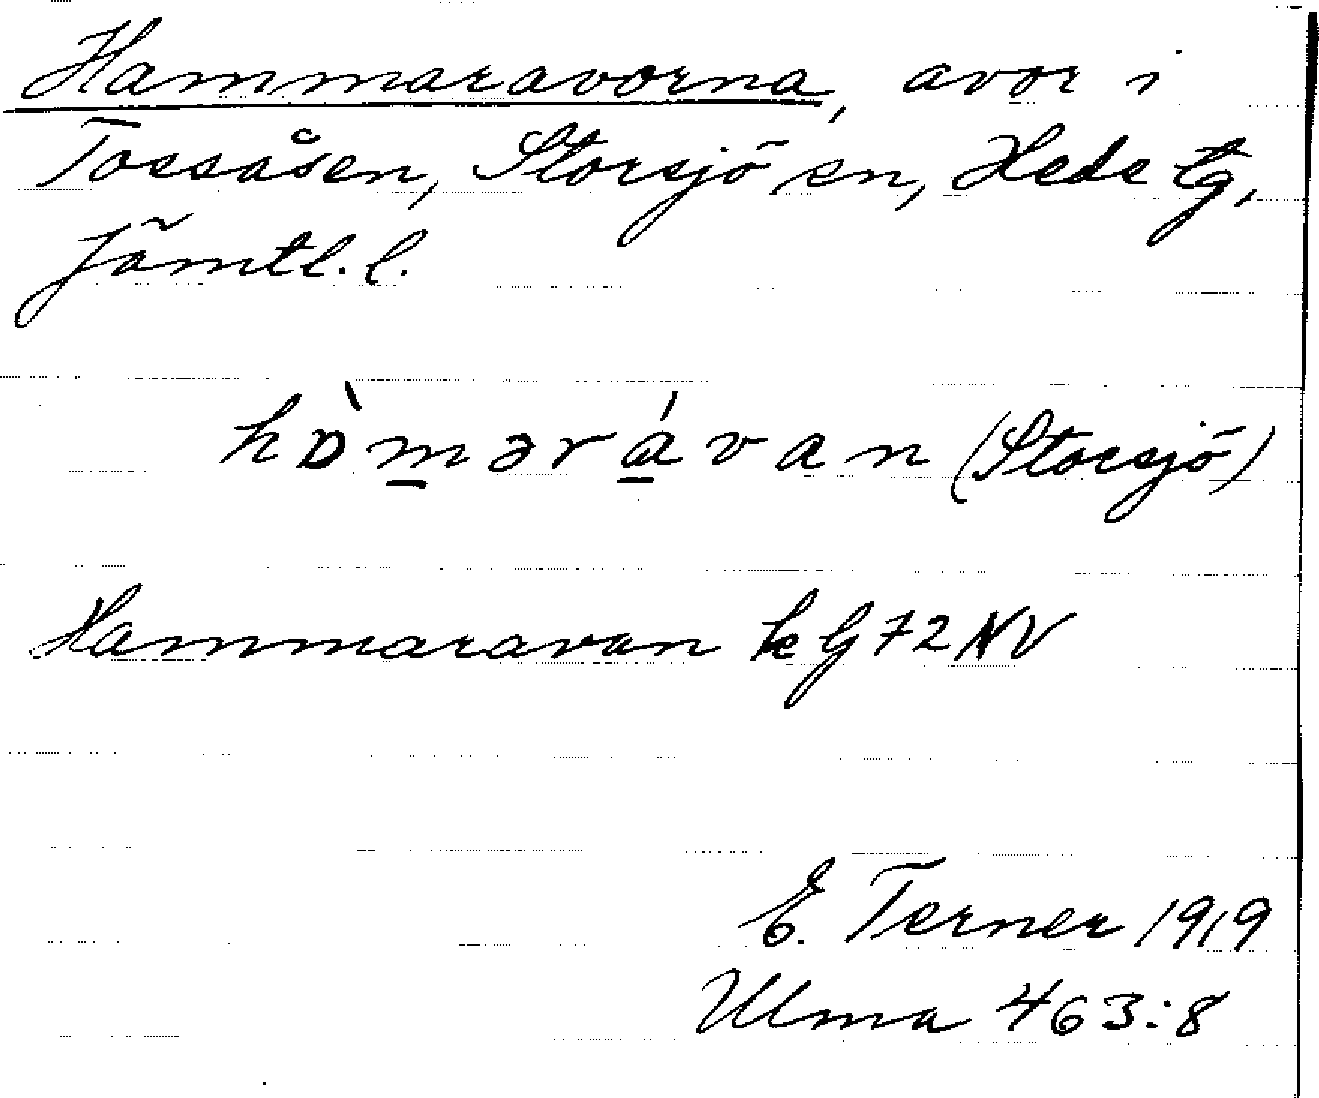 Hammaravorna, avor i
Tossåsen, Storsjö sn, Hede tg,
Jämtl. l.
hɒ̀m̲ərá̲van (Storsjö)
Hammaravan k G 72 NV
E. Terner 1919
Ulma 463:8